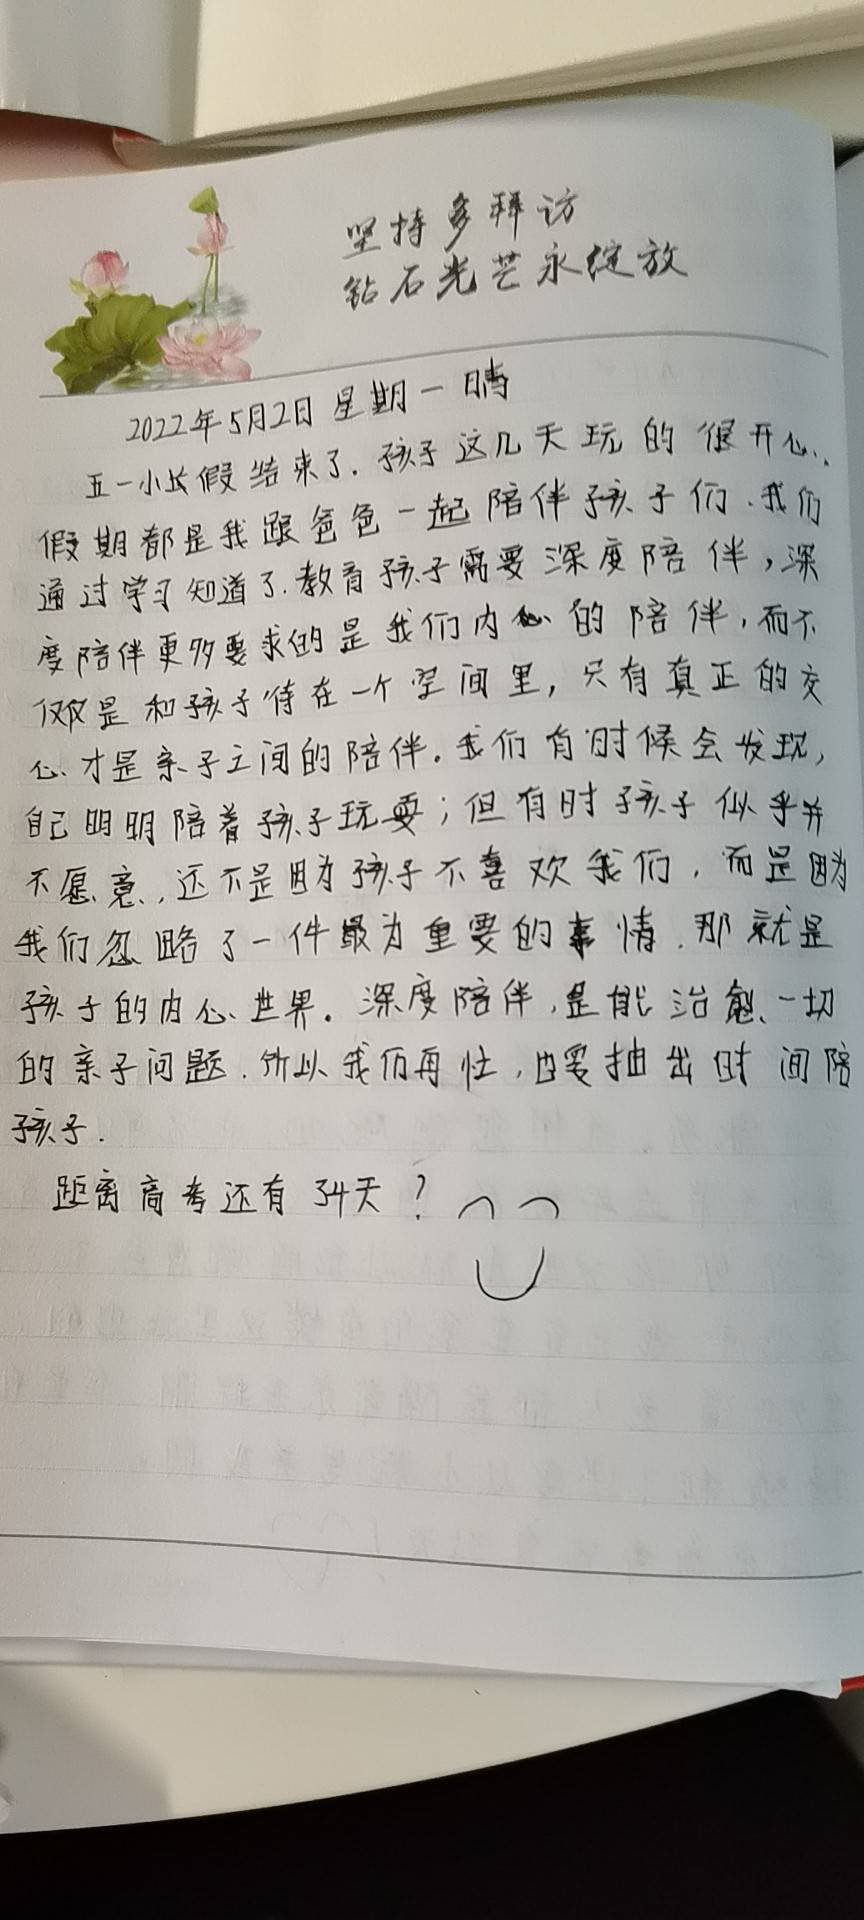 坚持多拜访
钻石光芒永绽放
2022年5月2日 星期一 晴
五一小长假结束了.孩子这几天玩的很开心.
假期都是我跟爸爸一起陪伴孩子们.我们
通过学习知道了.教育孩子需要深度陪伴,深
度陪伴更多要求的是我们内心的陪伴,而不
仅仅是和孩子待在一个空间里,只有真正的交
心.才是亲子之间的陪伴。我们有时候会发现,
自己明明陪着孩子玩耍;但有时孩子似乎并
不愿意.,还不是因为孩子不喜欢我们,而是因为
我们忽略了一件最为重要的事情.那就是
孩子的内心世界。深度陪伴,是能治愈一切
的亲子问题.所以我们再忙,也要抽出时间陪
孩子.
距离高考还有34天?